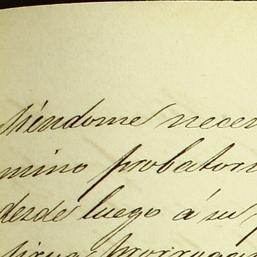 siéndome nece
mino probator
desde luego á su